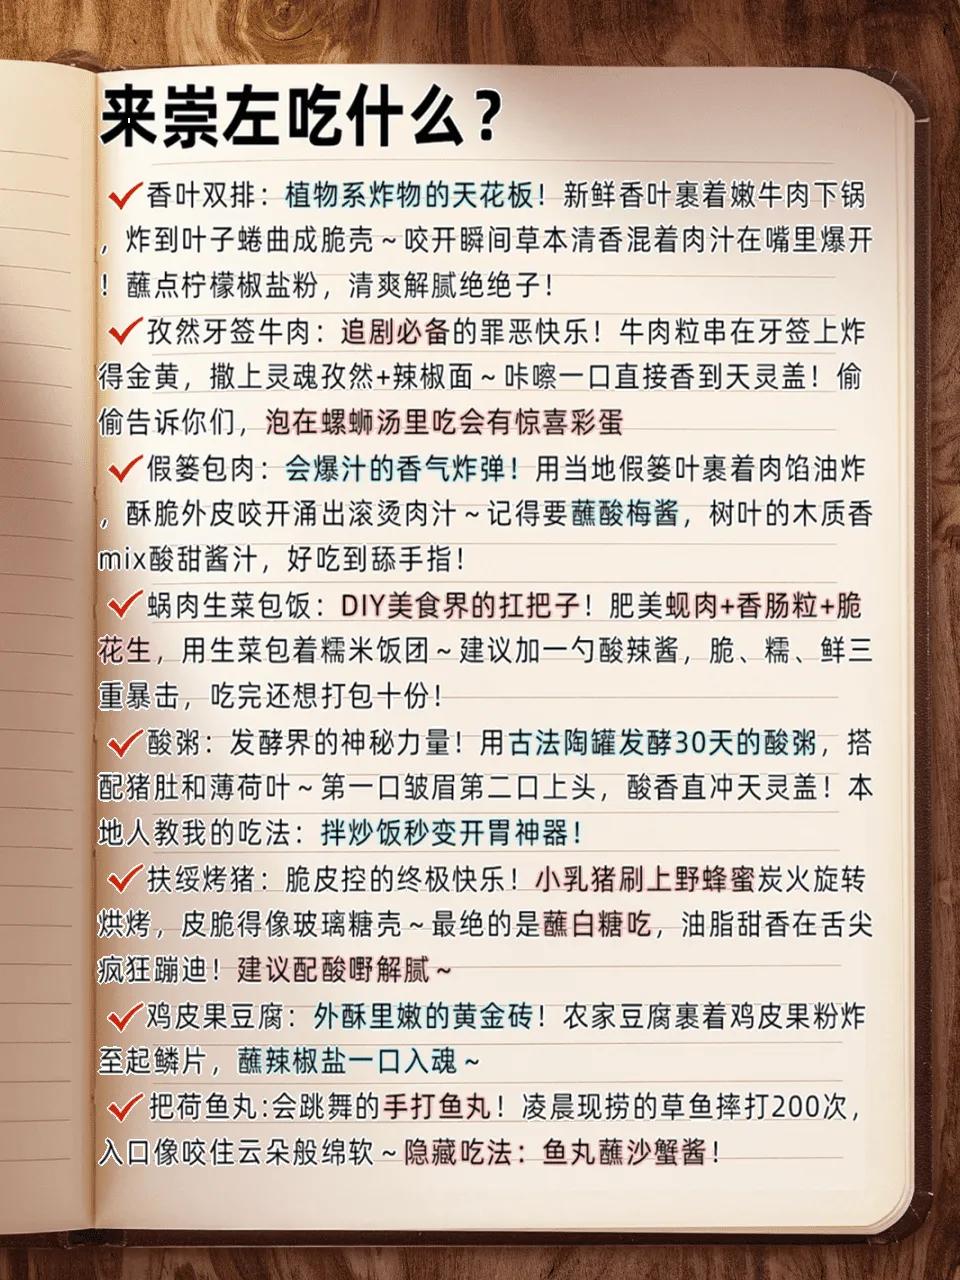 来崇左吃什么？
香叶双排：植物系炸物的天花板！新鲜香叶裹着嫩牛肉下锅
，炸到叶子蜷曲成脆壳~咬开瞬间草本清香混着肉汁在嘴里爆开
！蘸点柠檬椒盐粉，清爽解腻绝绝子！
孜然牙签牛肉：追剧必备的罪恶快乐！牛肉粒串在牙签上炸
得金黄，撒上灵魂孜然+辣椒面~咔嚓一口直接香到天灵盖！偷
偷告诉你们，泡在螺蛳汤里吃会有惊喜彩蛋
假篓包肉：会爆汁的香气炸弹！用当地假篓叶裹着肉馅油炸
，酥脆外皮咬开涌出滚烫肉汁~记得要蘸酸梅酱，树叶的木质香
mix酸甜酱汁，好吃到舔手指！
蜗肉生菜包饭：DIY美食界的扛把子！肥美蚬肉+香肠粒+脆
花生，用生菜包着糯米饭团~建议加一勺酸辣酱，脆、糯、鲜三
重暴击，吃完还想打包十份！
酸粥：发酵界的神秘力量！用古法陶罐发酵30天的酸粥，搭
配猪肚和薄荷叶~第一口皱眉第二口上头，酸香直冲天灵盖！本
地人教我的吃法：拌炒饭秒变开胃神器！
扶绥烤猪：脆皮控的终极快乐！小乳猪刷上野蜂蜜炭火旋转
烘烤，皮脆得像玻璃糖壳~最绝的是蘸白糖吃，油脂甜香在舌尖
疯狂蹦迪！建议配酸嘢解腻~
鸡皮果豆腐：外酥里嫩的黄金砖！农家豆腐裹着鸡皮果粉炸
至起鳞片，蘸辣椒盐一口入魂~
把荷鱼丸:会跳舞的手打鱼丸！凌晨现捞的草鱼摔打200次，
入口像咬住云朵般绵软~隐藏吃法：鱼丸蘸沙蟹酱！